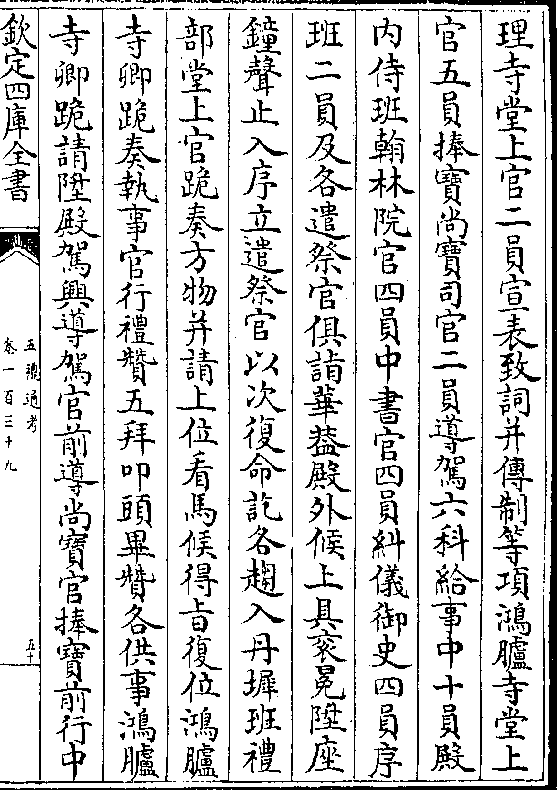 理寺堂上官二員宣表致詞并傳制等項鴻臚寺堂上
官五員捧寶尚寶司官二員導駕六科給事中十員殿
内侍班翰林院官四員中書官四員糾儀御史四員序
班二員及各遣祭官俱詣華葢殿外候上具衮冕陞座
鐘聲止入序立遣祭官以次復命訖各趨入丹墀班禮
部堂上官跪奏方物并請上位看馬候得旨復位鴻臚
寺卿跪奏執事官行禮贊五拜叩頭畢贊各供事鴻臚
寺卿跪請陞殿駕興導駕官前導尚寶官捧寶前行中
欽定四庫全書
五禮通考
卷一百三十九
五十